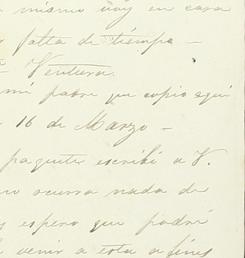 mismo hoy en casa
falta de tiempo —
Ventura.
mi padre que copio aquí
16 de Marzo —
paquete escribí a V.
ocurra nada de
espero que podré
venir a esta a fines